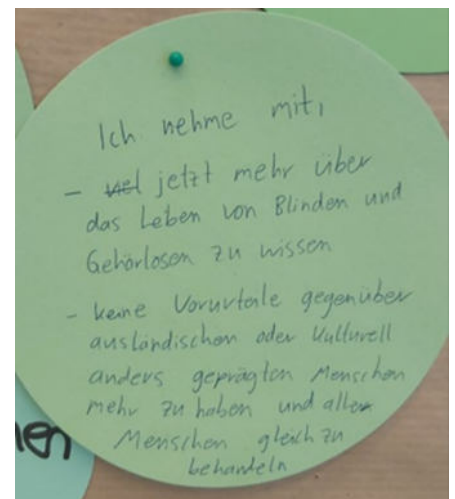 Ich nehme mit,
- viel jetzt mehr über
das Leben von Blinden und
Gehörlosen zu wissen
- keine Vorurteile gegenüber
ausländischen oder kulturell
anders geprägten Menschen
mehr zu haben und alle
Menschen gleich zu
behandeln
en